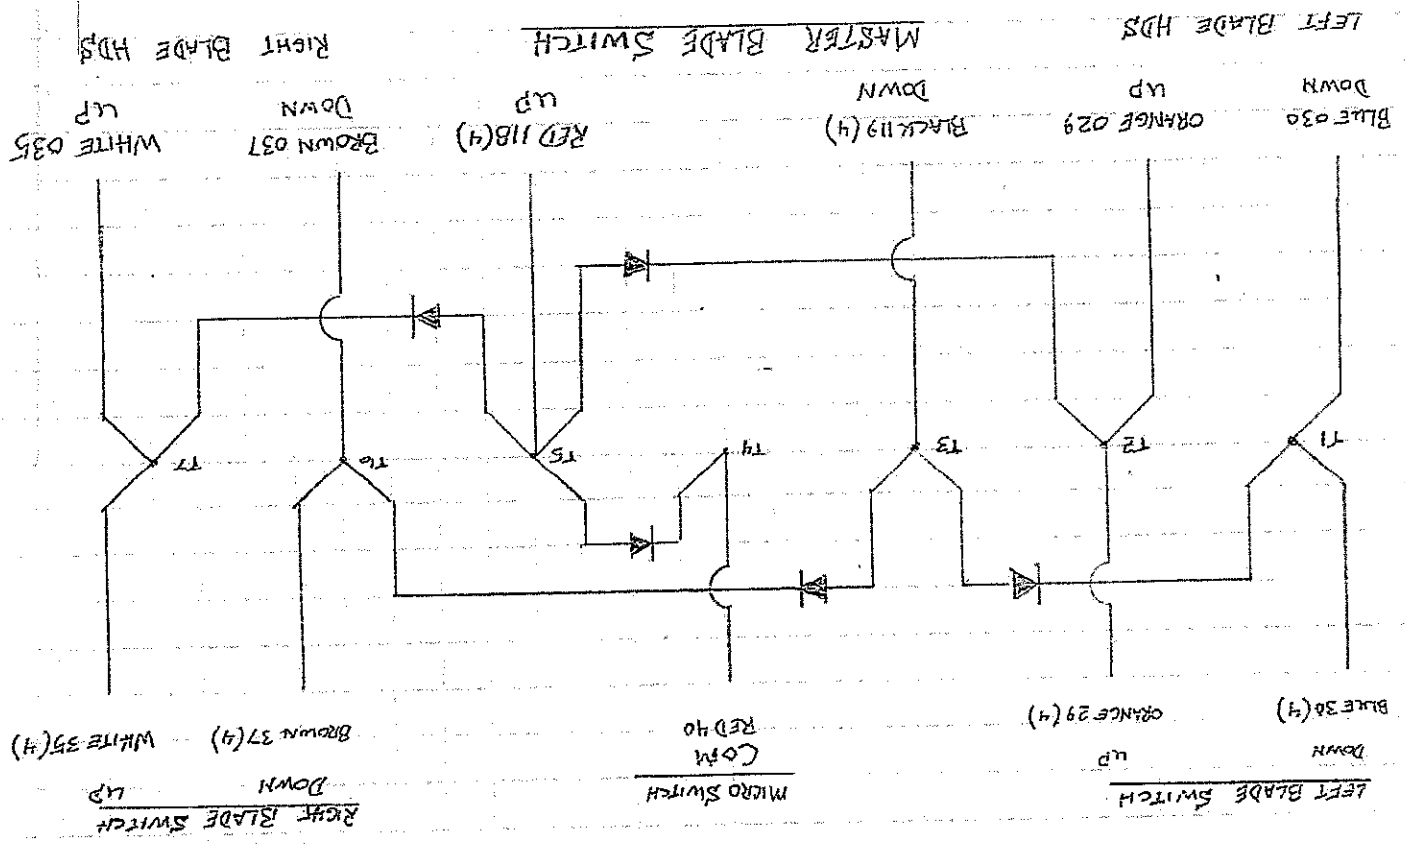 LEFT BLADE SWITCH
DOWN UP
BLUE 30(4) ORANGE 29(4)
MICRO SWITCH
COM
RED 40
RIGHT BLADE SWITCH
DOWN UP
BROWN 37(4) WHITE 35(4)
T1 T2 T3 T4 T5 T6 T7
BLUE 030 ORANGE 029 BLACK 119(4) RED 118(4) BROWN 037 WHITE 035
DOWN UP DOWN UP DOWN UP
LEFT BLADE HDS MASTER BLADE SWITCH RIGHT BLADE HDS